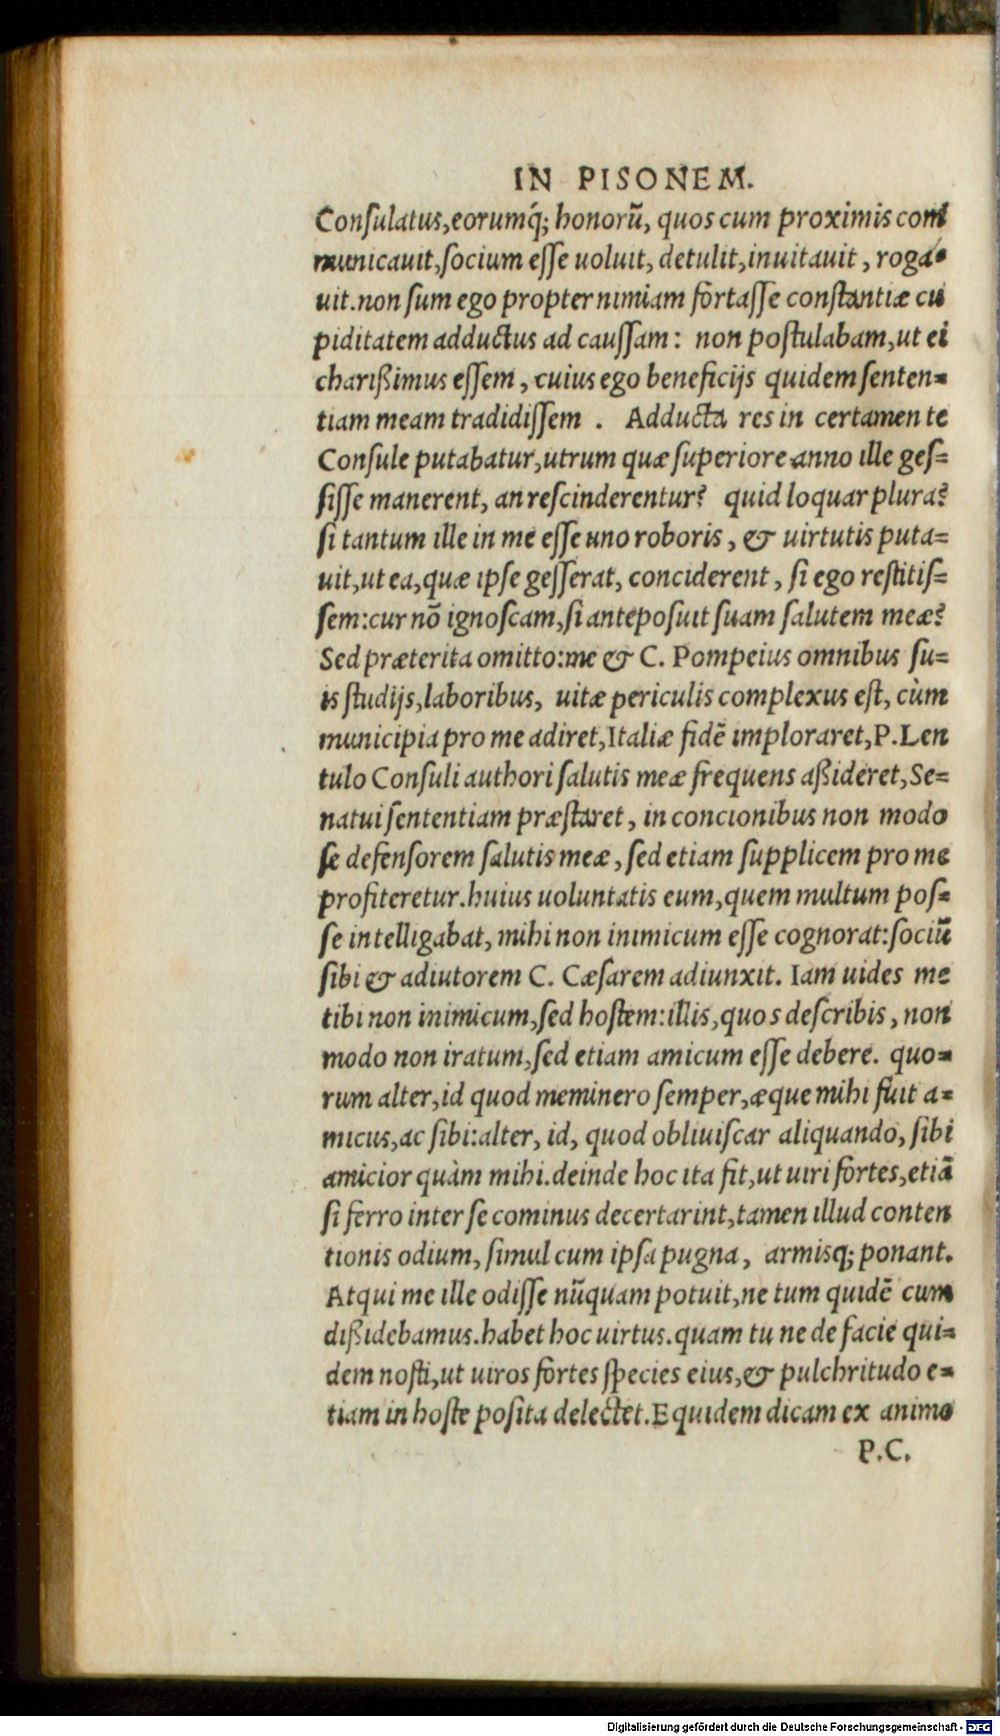 IN PISONEM.
Conſulatus,eorumq́; honorū, quos cum proximis com
municauit,ſocium eſſe uoluit, detulit,inuitauit, roga-
uit.non ſum ego propter nimiam fortaſſe conſtantiæ cu
piditatem adductus ad cauſſam: non poſtulabam,ut ei
charißimus eſſem, cuius ego beneficijs quidem ſenten-
tiam meam tradidiſſem . Adducta res in certamen te
Conſule putabatur,utrum quæ ſuperiore anno ille geſ-
ſiſſe manerent, an reſcinderentur? quid loquar plura?
ſi tantum ille in me eſſe uno roboris, & uirtutis puta-
uit,ut ea,quæ ipſe geſſerat, conciderent, ſi ego reſtitiſ-
ſem:cur nō ignoſcam,ſi antepoſuit ſuam ſalutem meæ?
Sed præterita omitto:me & C. Pompeius omnibus ſu-
is ſtudijs,laboribus, uitæ periculis complexus eſt, cùm
municipia pro me adiret,Italiæ fidē imploraret,P.Len
tulo Conſuli authori ſalutis meæ frequens aßideret,Se-
natui ſententiam præſtaret, in concionibus non modo
ſe defenſorem ſalutis meæ, ſed etiam ſupplicem pro me
profiteretur.huius uoluntatis eum,quem multum poſ-
ſe intelligabat, mihi non inimicum eſſe cognorat:ſociū
ſibi & adiutorem C. Cæſarem adiunxit. Iam uides me
tibi non inimicum,ſed hoſtem:illis,quos deſcribis, non
modo non iratum,ſed etiam amicum eſſe debere. quo-
rum alter,id quod meminero ſemper,æque mihi fuit a-
micus,ac ſibi:alter, id, quod obliuiſcar aliquando, ſibi
amicior quàm mihi.deinde hoc ita fit,ut uiri fortes,etiā
ſi ferro inter ſe cominus decertarint,tamen illud conten
tionis odium, ſimul cum ipſa pugna, armisq; ponant.
Atqui me ille odiſſe nūquam potuit,ne tum quidē cum
dißidebamus.habet hoc uirtus.quam tu ne de facie qui-
dem noſti,ut uiros fortes ſpecies eius,& pulchritudo e-
tiam in hoſte poſita delectet.Equidem dicam ex animo
P.C.
Digitalisierung gefördert durch die Deutsche Forschungsgemeinschaft - DFG